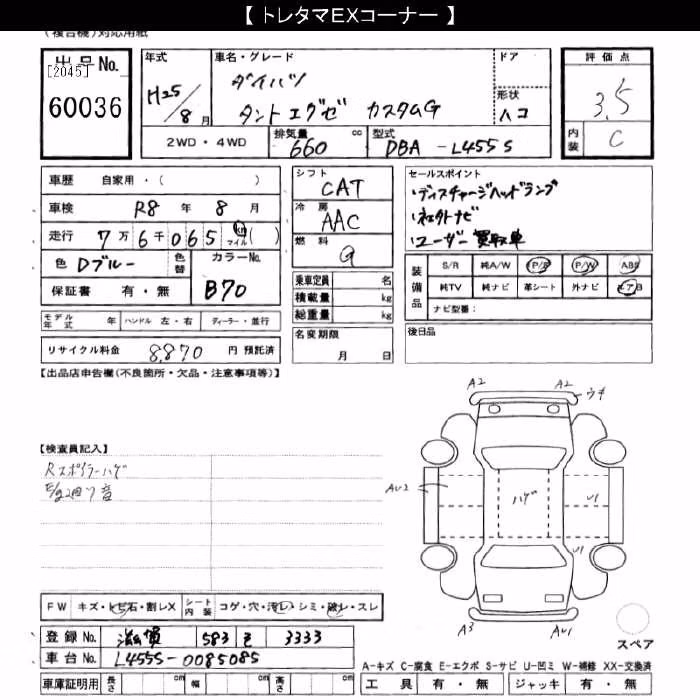 【 トレタマEXコーナー 】
(複合機)対応用紙
出品No.
[2045]
60036
年式
H25/8月
車名・グレード
ダイハツ
タントエグゼ カスタムG
ドア
形状
ハコ
評価点
3.5
内装 C
2WD・4WD
排気量 660 cc
型式 DBA - L455S
車歴 自家用・( )
車検 R8 年 8 月
走行 7万6千065 km マイル ( )
色 Dブルー
色替
カラーNo.
B70
保証書 有・無
モデル年式 年 ハンドル 左・右 ディーラー・並行
リサイクル料金 8,870 円 預託済
シフト
CAT
冷房
AAC
燃料
G
乗車定員 名
積載量 kg
総重量 kg
名変期限
月 日
セールスポイント
・ディスチャージヘッドランプ
・ネクストナビ
・ユーザー買取車
装備品
S/R 純A/W P/S P/W ABS
純TV 純ナビ 革シート 外ナビ エアB
ナビ型番:
後日品
【出品店申告欄(不良箇所・欠品・注意事項等)】
【検査員記入】
Rスポイラーハゲ
E/g2回り音
A2 A2 ウキ
AU2 ハゲ U1
A3 AU1
スペア
FW キズ・トビ石・割レX シート内装 コゲ・穴・汚レ・シミ・破レ・スレ
登録No. 滋賀 583 そ 3333
車台No. L455S-0085085
車庫証明用 長さ cm 幅 cm 高さ cm
A-キズ C-腐食 E-エクボ S-サビ U-凹ミ W-補修 XX-交換済
工具 有・無 ジャッキ 有・無